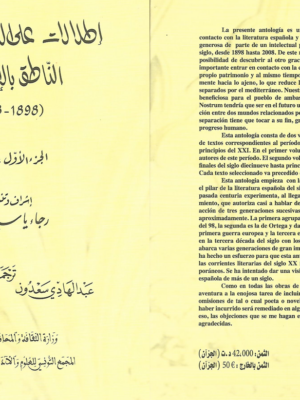 إطلالات على ال
الناطق بال
(1898-
الجزء الأول
إشراف و
رجاء ياس
ترجمة
عبد الهادي سعدون
وزارة الثقافة والمحاف
المجمع التونسي للعلوم والآد
La presente antología es un
contacto con la literatura española y
generosa de parte de un intelectual p
siglo, desde 1898 hasta 2008. De este m
posibilidad de descubrir al otro graci
importante entrar en contacto con la c
propio patrimonio y al mismo tiempo
hacia lo ajeno, lo que reduce l
separados por el mediterráneo. Nuestr
beneficiosa para el pueblo de ambas
Nostrum tendría que ser en el futuro u
ción entre dos mundos relacionados po
separación tiene que tocar a su fin, gr
progreso humano.
Esta antología consta de dos v
de textos correspondientes al período
principios del XXI. En el primer volum
autores de este período. El segundo volu
finales del siglo diecinueve hasta princip
Cada texto seleccionado va precedido
Esta antología empieza con la
el pilar de la literatura española del si
pasada centuria experimenta, al llega
miento, que autoriza casi a hablar de
acción de tres generaciones sucesivas
aproximadamente. La primera agrupa
del 98, la segunda es la de Ortega y
primera guerra europea y la tercera e
en la tercera década del siglo con los
abarca varias generaciones de gran im
ha hecho un esfuerzo para que esta ant
las corrientes literarias del siglo XX
poráneos. Se ha intentado dar una visi
española de más de un siglo.
Como en todas las obras de
aventura a la enojosa tarea de incluir
omisiones de tal o cual poeta o novel
haber incurrido será remediado en algún
eso, las objeciones que se me hagan s
agradecidas.
الثمن: 42.000 د.ت (الجزآن)
الثمن بالخارج: 50€ (الجزآن)